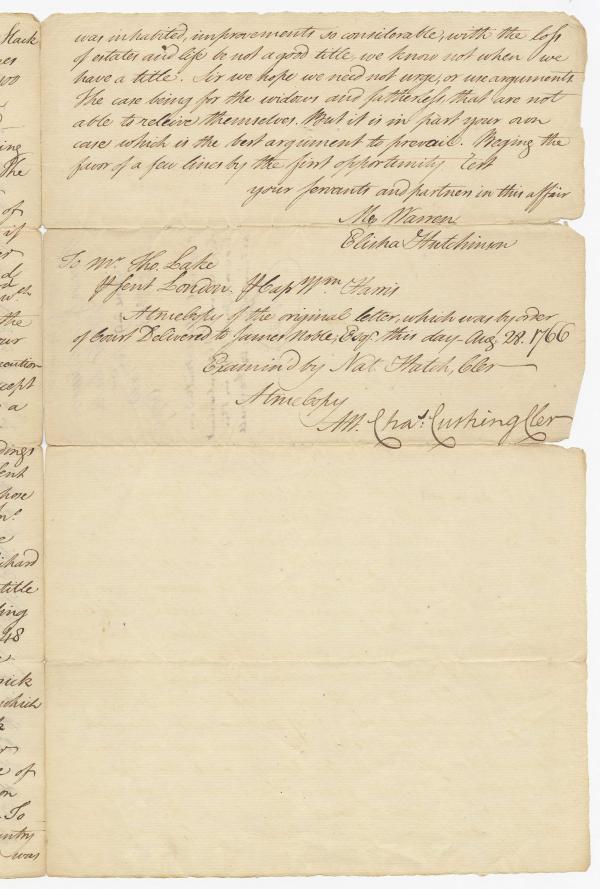 was inhabited, improvements so considerable, with the loss
of estates and life be not a good title, we know not when we
have a title. Sir we hope we need not urge, or use arguments
The case being for the widows and futherless that are not
able to releive themselves. But it is in part your own
case which is the best argument to prevail. Beging the
favor of a few lines by the first opportunity Rest
your servants and partners in this affair
Warren
Elisha Hutchinson
To Mr. Tho. Lake
sent London. Cap Wm Harris
A true Copy of the original letter, which was by order
of Court Delivered to James Noble, Esq. this day Aug. 28. 1766
Examin'd by Nat. Hatch, Cler
A true Copy
Att. Chas. Cushing Cler
Mack
ing
The
of
if
the
our
cept
a
dings
sent
those
ichard
title
48
rick
which
of
on
To
untry
was